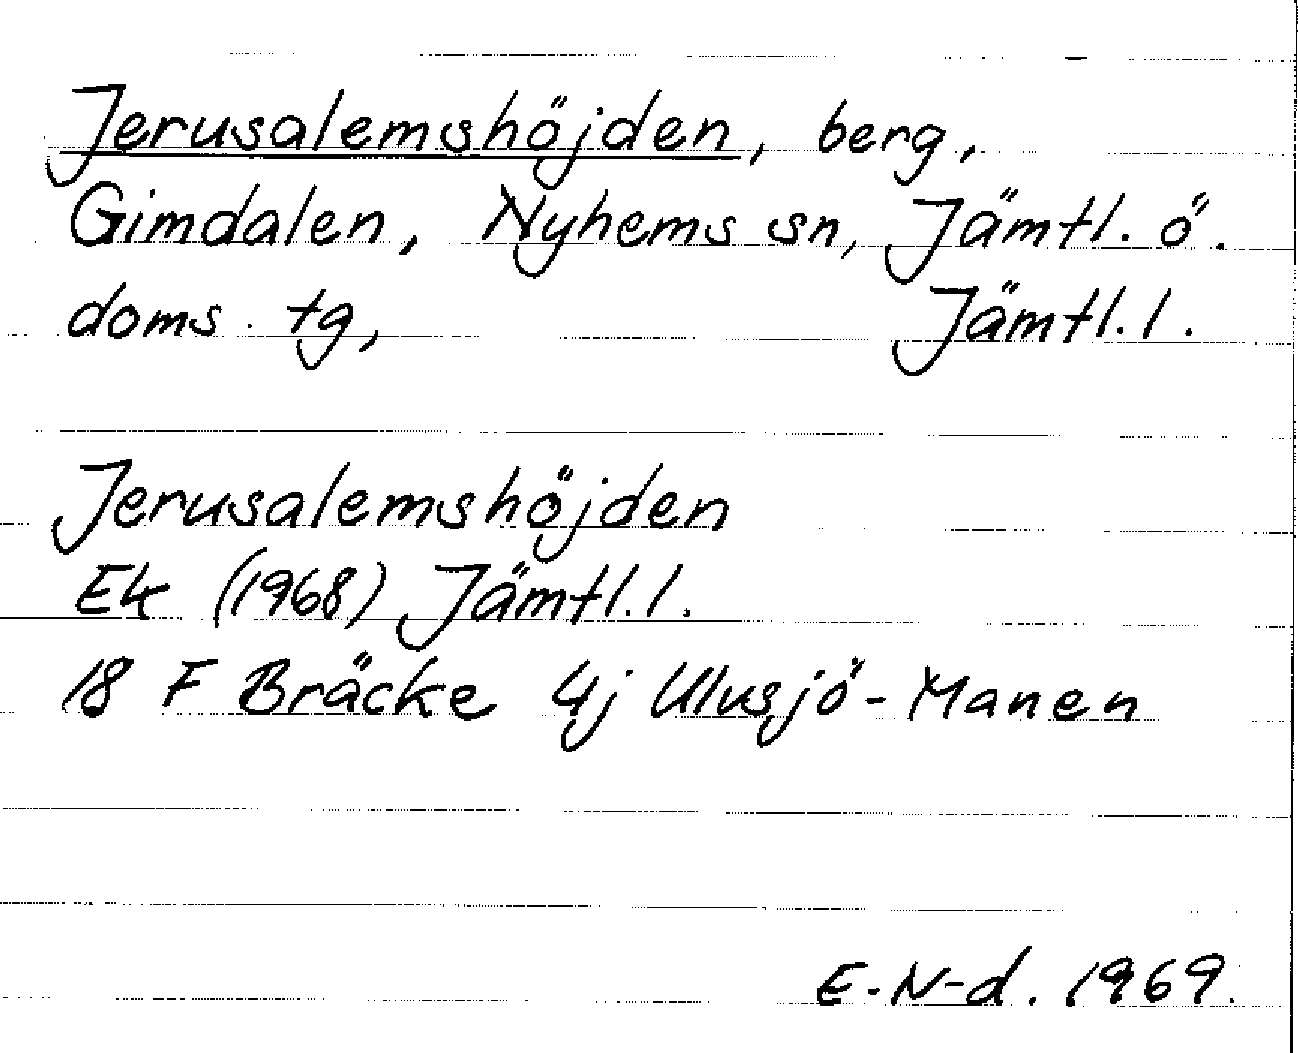 Jerusalemshöjden, berg,
Gimdalen, Nyhems sn, Jämtl. ö.
doms. tg, Jämtl. l.
Jerusalemshöjden
Ek (1968) Jämtl. l.
18 F Bräcke 4j Ulvsjö-Manen
E. N-d. 1969.